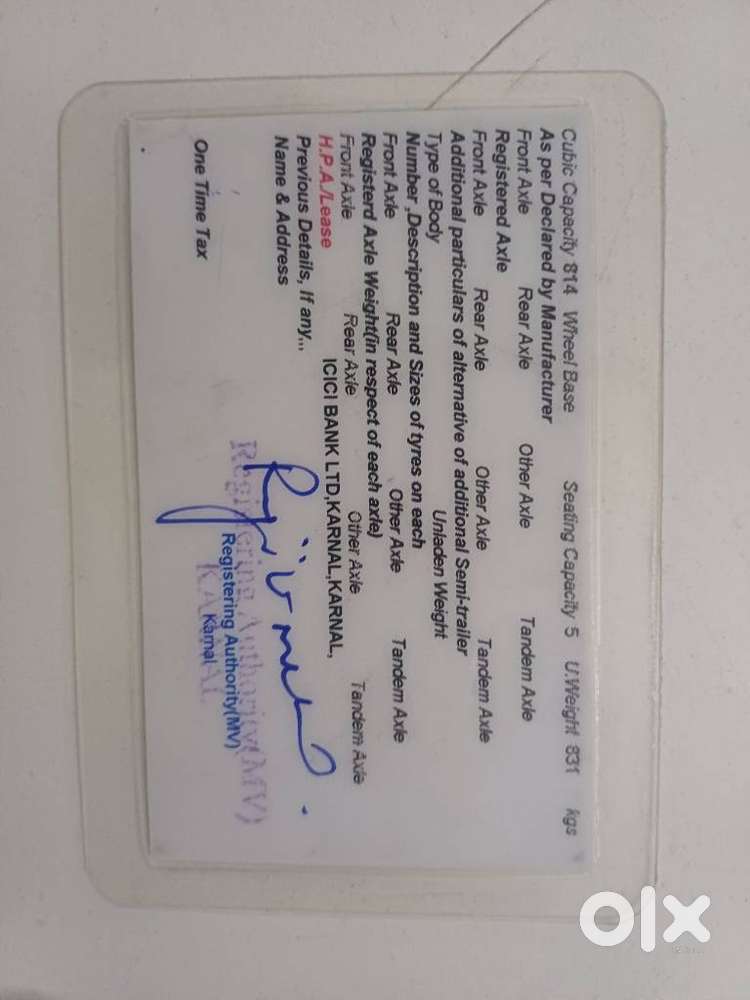 Cubic Capacity 814 Wheel Base Seating Capacity 5 U.Weight 831 kgs
As per Declared by Manufacturer
Front Axle Rear Axle Other Axle Tandem Axle
Registered Axle
Front Axle Rear Axle Other Axle Tandem Axle
Additional particulars of alternative of additional Semi-trailer
Type of Body Unladen Weight
Number ,Description and Sizes of tyres on each
Front Axle Rear Axle Other Axle Tandem Axle
Registerd Axle Weight(in respect of each axle)
Front Axle Rear Axle Other Axle Tandem Axle
H.P.A./Lease ICICI BANK LTD,KARNAL,KARNAL,
Previous Details, If any...
Name & Address
Registering Authority(MV)
KARNAL
Registering Authority(MV)
Karnal
One Time Tax
olx